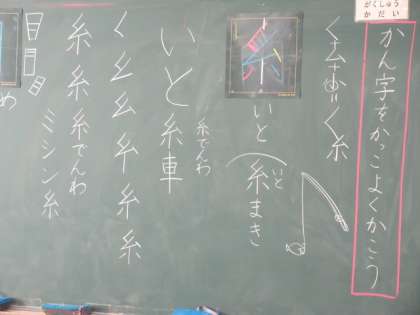 がくしゅう
かだい
かん字をかっこよくかこう
糸
く+ム+小=く糸
いと
いと
糸まき
糸でんわ
いと糸車
く 幺 糸 糸
糸糸糸でんわ
ミシン糸
め